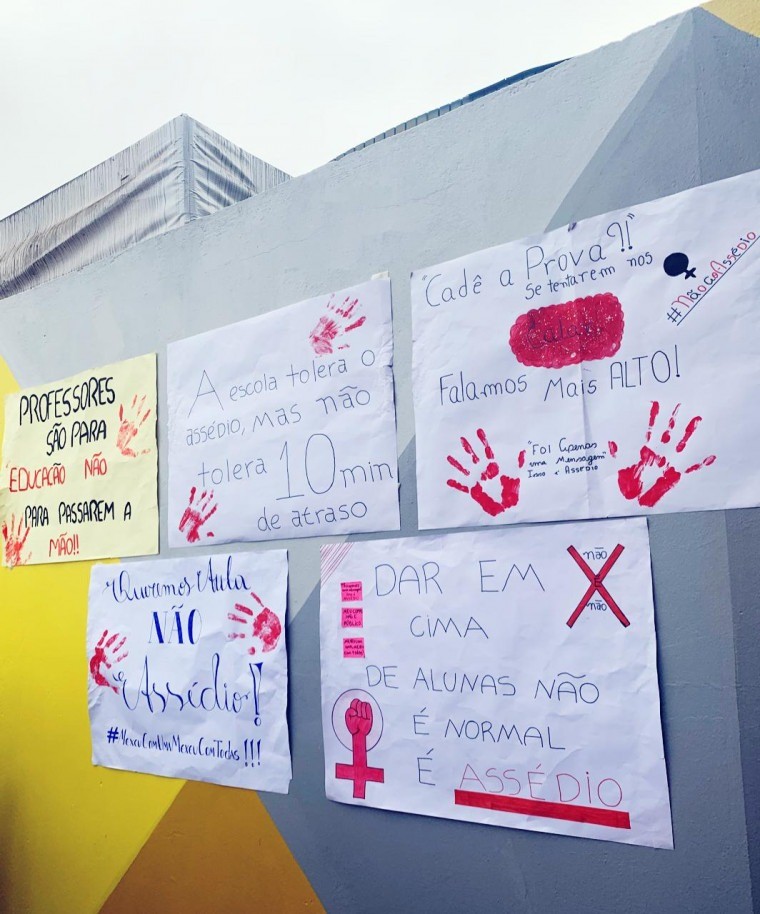 PROFESSORES
SÃO PARA
EDUCAÇÃO NÃO
PARA PASSAREM A
MÃO!!
A escola tolera o
assédio, mas não
tolera 10 min
de atraso
"Cadê a Prova?!"
Se tentarem nos
Calar
Falamos Mais ALTO!
#NãoaoAssédio
"Foi Apenas
uma Mensagem"
Isso é Assédio
"Queremos Aula
NÃO
Assédio!
#MexeuComUmaMexeuComTodas!!!
DAR EM
CIMA
DE ALUNAS NÃO
É NORMAL
É ASSÉDIO
não
É
não